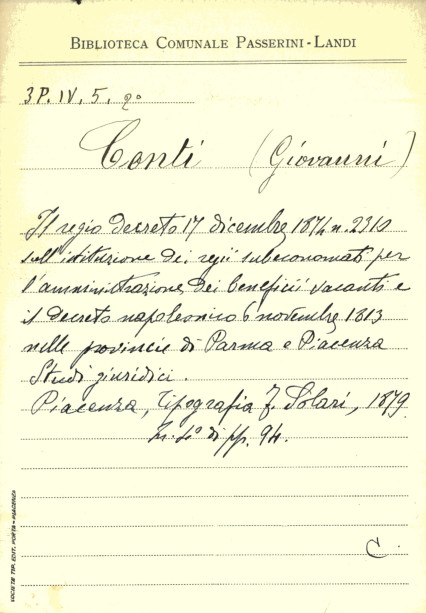 BIBLIOTECA COMUNALE PASSERINI-LANDI
3P. IV. 5. 2°
Conti (Giovanni)
Il regio decreto 17 dicembre 1874 n. 2310
sull'istituzione dei regii subeconomati per
l'amministrazione dei beneficii vacanti e
il decreto napoleonico 6 novembre 1813
nelle provincie di Parma e Piacenza
Studi giuridici.
Piacenza, Tipografia F. Solari, 1879
di pp. 94.
C.
SOCIETÀ TIP. EDIT. PORTA - PIACENZA